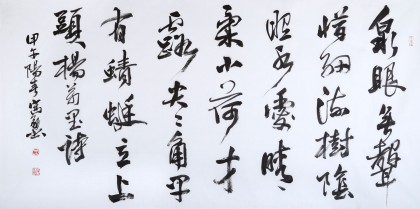 泉眼無聲
惜細流樹陰
照水愛晴
柔小荷才
露尖〻角早
有蜻蜓立上
頭楊萬里詩
甲午陽春